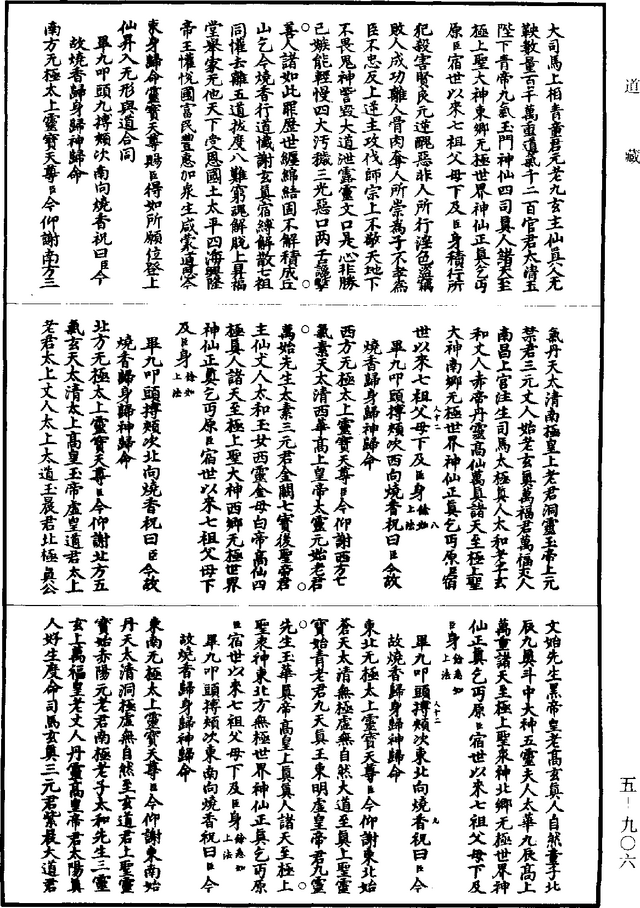 道藏
大司馬上相青童君元老九玄主仙真人无
鞅數量百千萬重道氣千二百官君太清玉
陛下青帝九氣玉門神仙四司真人諸天至
極上聖大神東鄉无極世界神仙正真乞丐
原臣宿世以來七祖父母下及臣身積行所
犯殺害賢良元逆醜惡非人所行淫色盜竊
敗人成功離人骨肉奪人所崇為子不孝為
臣不忠反上逆主攻伐師宗上不敬天地下
不畏鬼神訾毀大道泄露靈文口是心非勝
己嫉能輕慢四大污穢三光惡口兩舌讒擊
善人諸如此罪歷世纏綿結固不解積成丘
山乞今燒香行道懺謝玄真宿縛解散七祖
同懽去離五道拔度八難窮魂解脫上昇福
堂舉家无他天下受恩國土太平四海興隆
帝王懽悅國富民豐惠加衆生咸蒙道恩今
束身歸命靈寶天尊賜臣得如所願位登上
仙昇入无形與道合同
畢九叩頭九搏頰次南向燒香祝曰臣今
故燒香歸身歸神歸命
南方无極太上靈寶天尊臣今仰謝南方三
氣丹天太清南極皇上老君洞靈玉帝上元
禁君三元丈人始老玄真萬福君萬福丈人
南昌上宮注生司馬太極真人太和老子玄
和丈人赤帝丹靈高仙萬真諸天至極上聖
大神南鄉无極世界神仙正真乞丐原臣宿
世以來七祖父母下及臣身餘如上法
畢九叩頭搏頰次西向燒香祝曰臣今故
燒香歸身歸神歸命
西方无極太上靈寶天尊臣今仰謝西方七
氣素天太清西華高上皇帝太靈元始老君
萬始先生太素三元君金闕七寶後聖帝君
主仙丈人太和玉女西靈金母白帝高仙四
極真人諸天至極上聖大神西鄉无極世界
神仙正真乞丐原臣宿世以來七祖父母下
及臣身餘如上法
畢九叩頭搏頰次北向燒香祝曰臣今故
燒香歸身歸神歸命
北方无極太上靈寶天尊臣今仰謝北方五
氣玄天太清太上高皇玉帝虛皇道君太上
老君太上丈人太上太道玉晨君北極真公
文始先生黑帝皇老高玄真人自然童子北
辰九真斗中大神五靈夫人太華九辰高上
萬重諸天至極上聖衆神北鄉无極世界神
仙正真乞丐原臣宿世以來七祖父母下及
臣身餘悉如上法
畢九叩頭搏頰次東北向燒香祝曰臣今
故燒香歸身歸神歸命
東北无極太上靈寶天尊臣今仰謝東北始
蒼天太清無極虛無自然大道至真上聖靈
寶始青老君九天真王東明虛皇帝君九靈
先生玉華真帝高皇上真真人諸天至極上
聖衆神東北方無極世界神仙正真乞丐原
臣宿世以來七祖父母下及臣身餘悉如上法
畢九叩頭搏頰次東南向燒香祝曰臣今
故燒香歸身歸神歸命
東南无極太上靈寶天尊臣今仰謝東南始
丹天太清洞極虛無自然至玄道君上聖靈
寶始赤陽元老君南極老子太和先生二靈
玄上萬福皇老丈人丹靈高皇帝君太陽真
人好生度命司馬玄真三元君紫晨大道君
五－九〇六